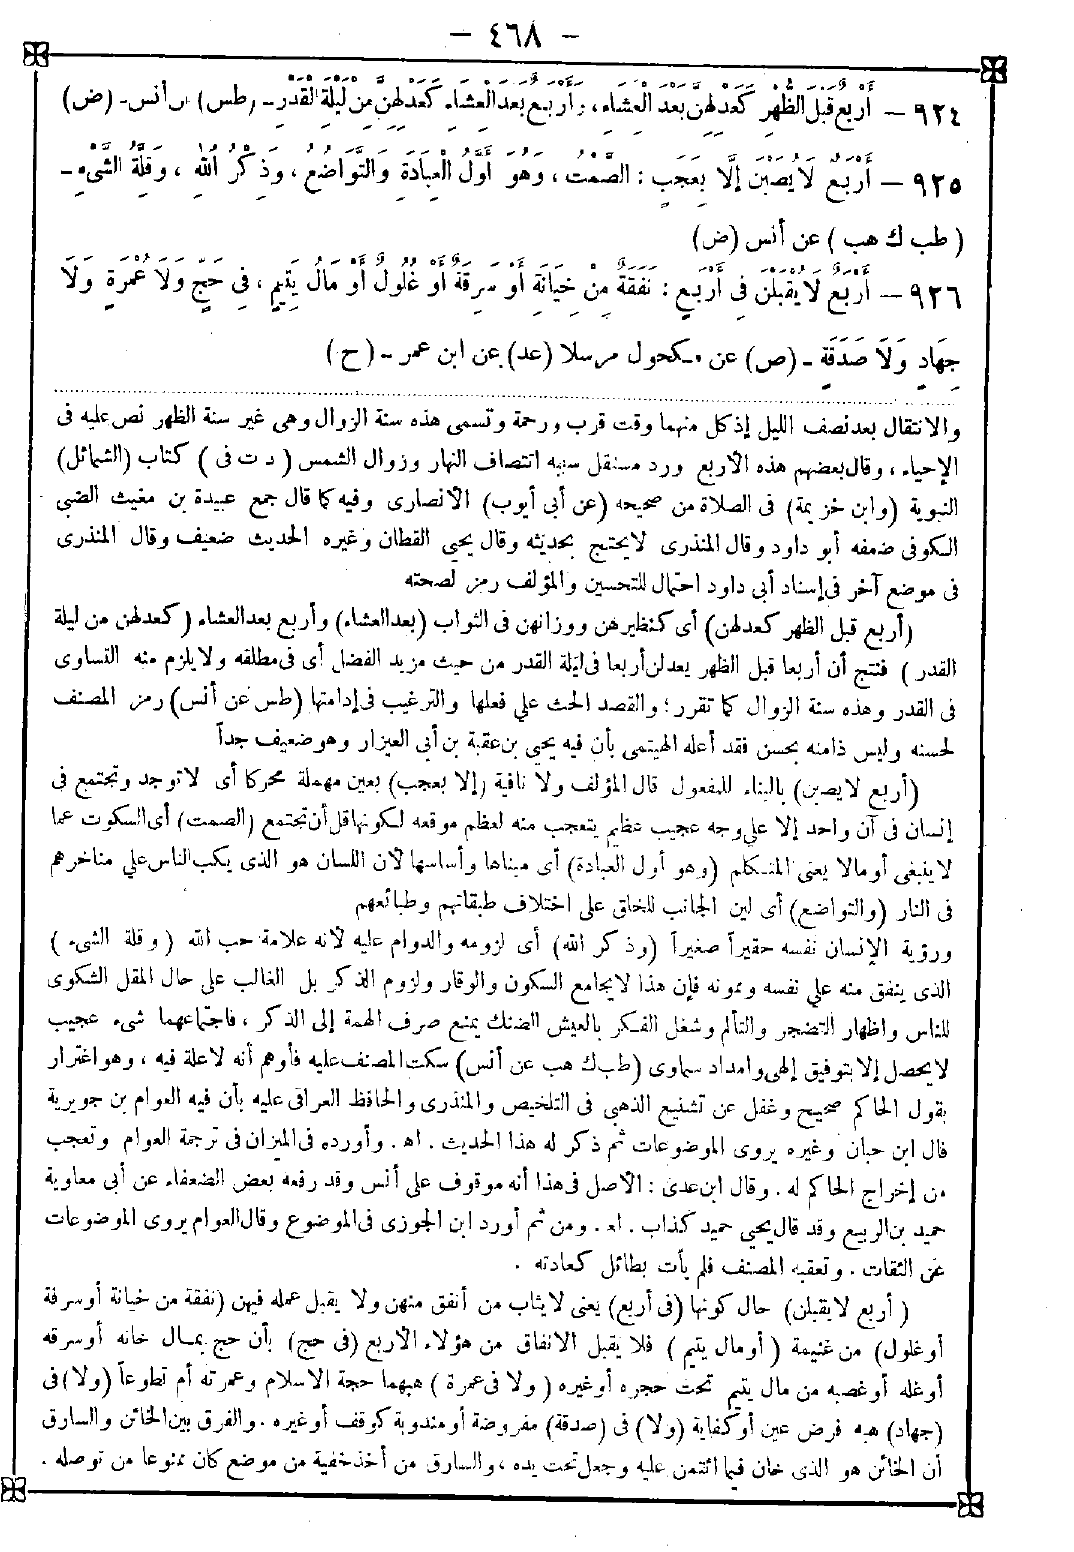 - ٤٦٨ -
٩٢٤ - أَرْبَعٌ قَبْلَ الظُّهْرِ كَعَدْلِهِنَّ بَعْدَ الْعِشَاءِ، وَأَرْبَعٌ بَعْدَ الْعِشَاءِ كَعَدْلِهِنَّ مِنْ لَيْلَةِ الْقَدْرِ - (طس) عن أنس - (ض)
٩٢٥ - أَرْبَعٌ لَا يُصَبْنَ إِلَّا بِعَجَبٍ : الصَّمْتُ، وَهُوَ أَوَّلُ الْعِبَادَةِ وَالتَّوَاضُعُ، وَذِكْرُ اللهِ، وَقِلَّةُ الشَّيْءِ -
(طب ك هب) عن أنس (ض)
٩٢٦ - أَرْبَعٌ لَا يُقْبَلْنَ فِي أَرْبَعٍ : نَفَقَةٌ مِنْ خِيَانَةٍ أَوْ سَرِقَةٍ أَوْ غُلُولٍ أَوْ مَالِ يَتِيمٍ، فِي حَجٍّ وَلَا عُمْرَةٍ وَلَا
جِهَادٍ وَلَا صَدَقَةٍ - (ص) عن مكحول مرسلا (عد) عن ابن عمر - (ح)
والانتقال بعد نصف الليل إذ كل منهما وقت قرب ورحمة وتسمى هذه سنة الزوال وهى غير سنة الظهر نص عليه فى
الإحياء، وقال بعضهم هذه الأربع ورد مستقل سببه انتصاف النهار وزوال الشمس (د ت فى) كتاب (الشمائل)
النبوية (وابن خزيمة) فى الصلاة من صحيحه (عن أبى أيوب) الأنصارى وفيه كما قال جمع عبيدة بن مغيث الضبى
الكوفى ضعفه أبو داود وقال المنذرى لا يحتج بحديثه وقال يحيى القطان وغيره الحديث ضعيف وقال المنذرى
فى موضع آخر فى إسناد أبى داود احتمال للتحسين والمؤلف رمز لصحته
(أربع قبل الظهر كعدلهن) أى كنظيرهن ووزانهن فى الثواب (بعد العشاء) وأربع بعد العشاء (كعدلهن من ليلة
القدر) فنتج أن أربعا قبل الظهر يعدلن أربعا فى ليلة القدر من حيث مزيد الفضل أى فى مطلقه ولا يلزم منه التساوى
فى القدر وهذه سنة الزوال كما تقرر؛ والقصد الحث على فعلها والترغيب فى إدامتها (طس عن أنس) رمز المصنف
لحسنه وليس ذا منه بحسن فقد أعله الهيتمى بأن فيه يحيى بن عقبة بن أبى العيزار وهو ضعيف جداً
(أربع لا يصبن) بالبناء للمفعول قال المؤلف ولا نافية (إلا بعجب) بعين مهملة محركا أى لا توجد وتجتمع فى
إنسان فى آن واحد إلا على وجه عجيب عظيم يتعجب منه لعظم موقعه لكونها قل أن تجتمع (الصمت) أى السكوت عما
لا ينبغى أو مالا يعنى المتكلم (وهو أول العبادة) أى مبناها وأساسها لأن اللسان هو الذى يكب الناس على مناخرهم
فى النار (والتواضع) أى لين الجانب للخلق على اختلاف طبقاتهم وطبائعهم
ورؤية الإنسان نفسه حقيراً صغيراً (وذكر الله) أى لزومه والدوام عليه لأنه علامة حب الله (وقلة الشىء)
الذى ينفق منه على نفسه وممونه فإن هذا لا يجامع السكون والوقار ولزوم الذكر بل الغالب على حال المقل الشكوى
للناس وإظهار التضجر والتألم وشغل الفكر بالعيش الضنك يمنع صرف الهمة إلى الذكر، فاجتماعهما شىء عجيب
لا يحصل إلا بتوفيق إلهى وإمداد سماوى (طب ك هب عن أنس) سكت المصنف عليه فأوهم أنه لا علة فيه، وهو اغترار
بقول الحاكم صحيح وغفل عن تشنيع الذهبى فى التلخيص والمنذرى والحافظ العراقى عليه بأن فيه العوام بن جويرية
قال ابن حبان وغيره يروى الموضوعات ثم ذكر له هذا الحديث . اهـ . وأورده فى الميزان فى ترجمة العوام وتعجب
من إخراج الحاكم له . وقال ابن عدى : الأصل فى هذا أنه موقوف على أنس وقد رفعه بعض الضعفاء عن أبى معاوية
حميد بن الربيع وقد قال يحيى حميد كذاب . اهـ . ومن ثم أورد ابن الجوزى فى الموضوع وقال العوام يروى الموضوعات
عن الثقات . وتعقبه المصنف فلم يأت بطائل كعادته .
(أربع لا يقبلن) حال كونها (فى أربع) يعنى لا يثاب من أنفق منهن ولا يقبل عمله فيهن (نفقة من خيانة أو سرقة
أو غلول) من غنيمة (أو مال يتيم) فلا يقبل الانفاق من هؤلاء الأربع (فى حج) بأن حج بمال خانه أو سرقه
أو غله أو غصبه من مال يتيم تحت حجره أو غيره (ولا فى عمرة) هبهما حجة الاسلام وعمرته أم تطوعاً (ولا) فى
(جهاد) هبه فرض عين أو كفاية (ولا) فى (صدقة) مفروضة أو مندوبة كوقف أو غيره . والفرق بين الخائن والسارق
أن الخائن هو الذى خان فيما ائتمن عليه وجعل تحت يده، والسارق من أخذ خفية من موضع كان ممنوعا من توصله .